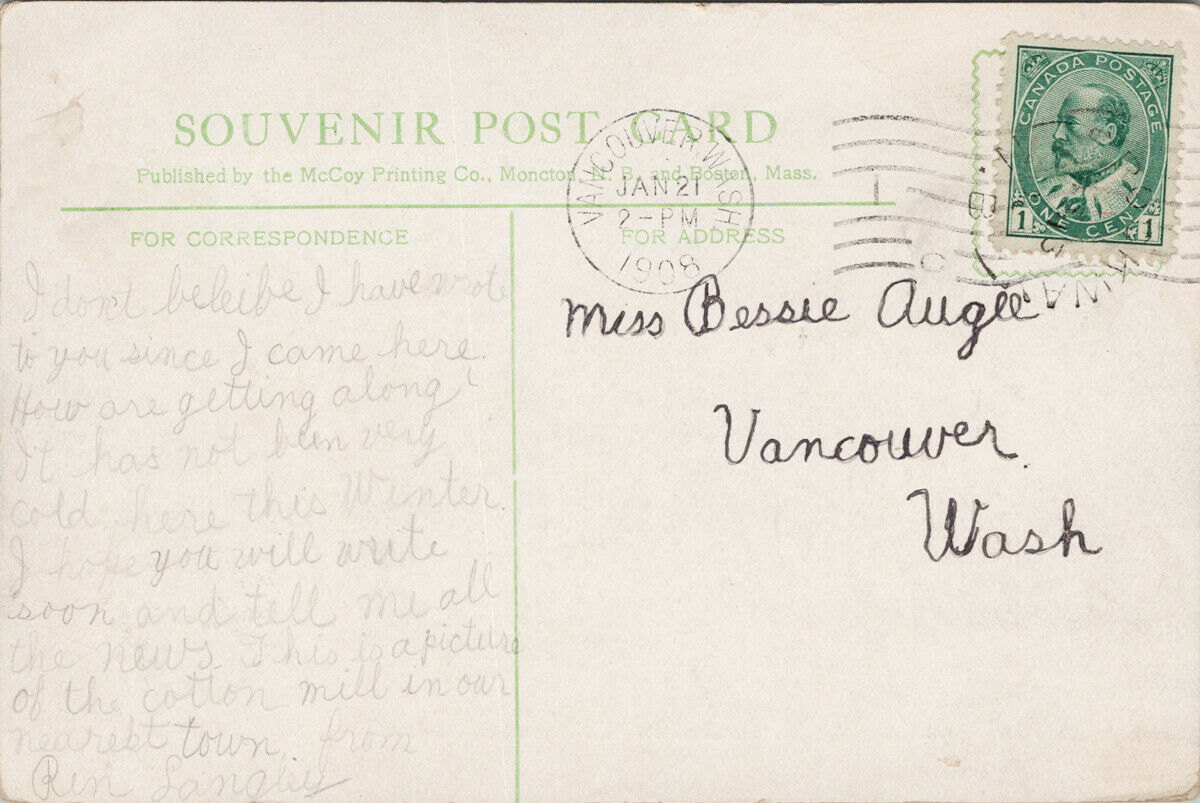 SOUVENIR POST CARD
Published by the McCoy Printing Co., Moncton, N. B., and Boston, Mass.
VANCOUVER WASH
JAN 21
2-PM
1908
CANADA POSTAGE
1 ONE CENT 1
FOR CORRESPONDENCE
I don't beleibe I have wrote
to you since I came here.
How are getting along
It has not been very
cold here this Winter.
I hope you will write
soon and tell me all
the news. This is a picture
of the cotton mill in our
nearest town from
Ren Langley
FOR ADDRESS
Miss Bessie Augee
Vancouver
Wash